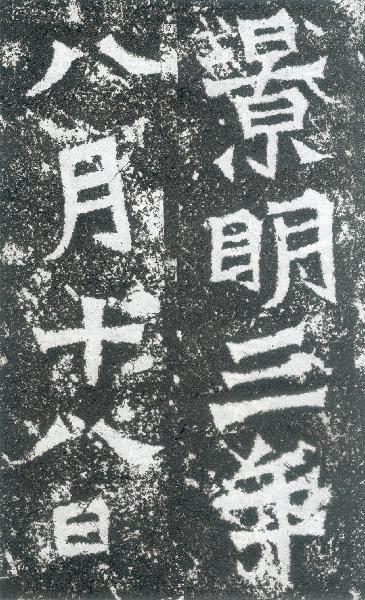 景明三年
八月十八日